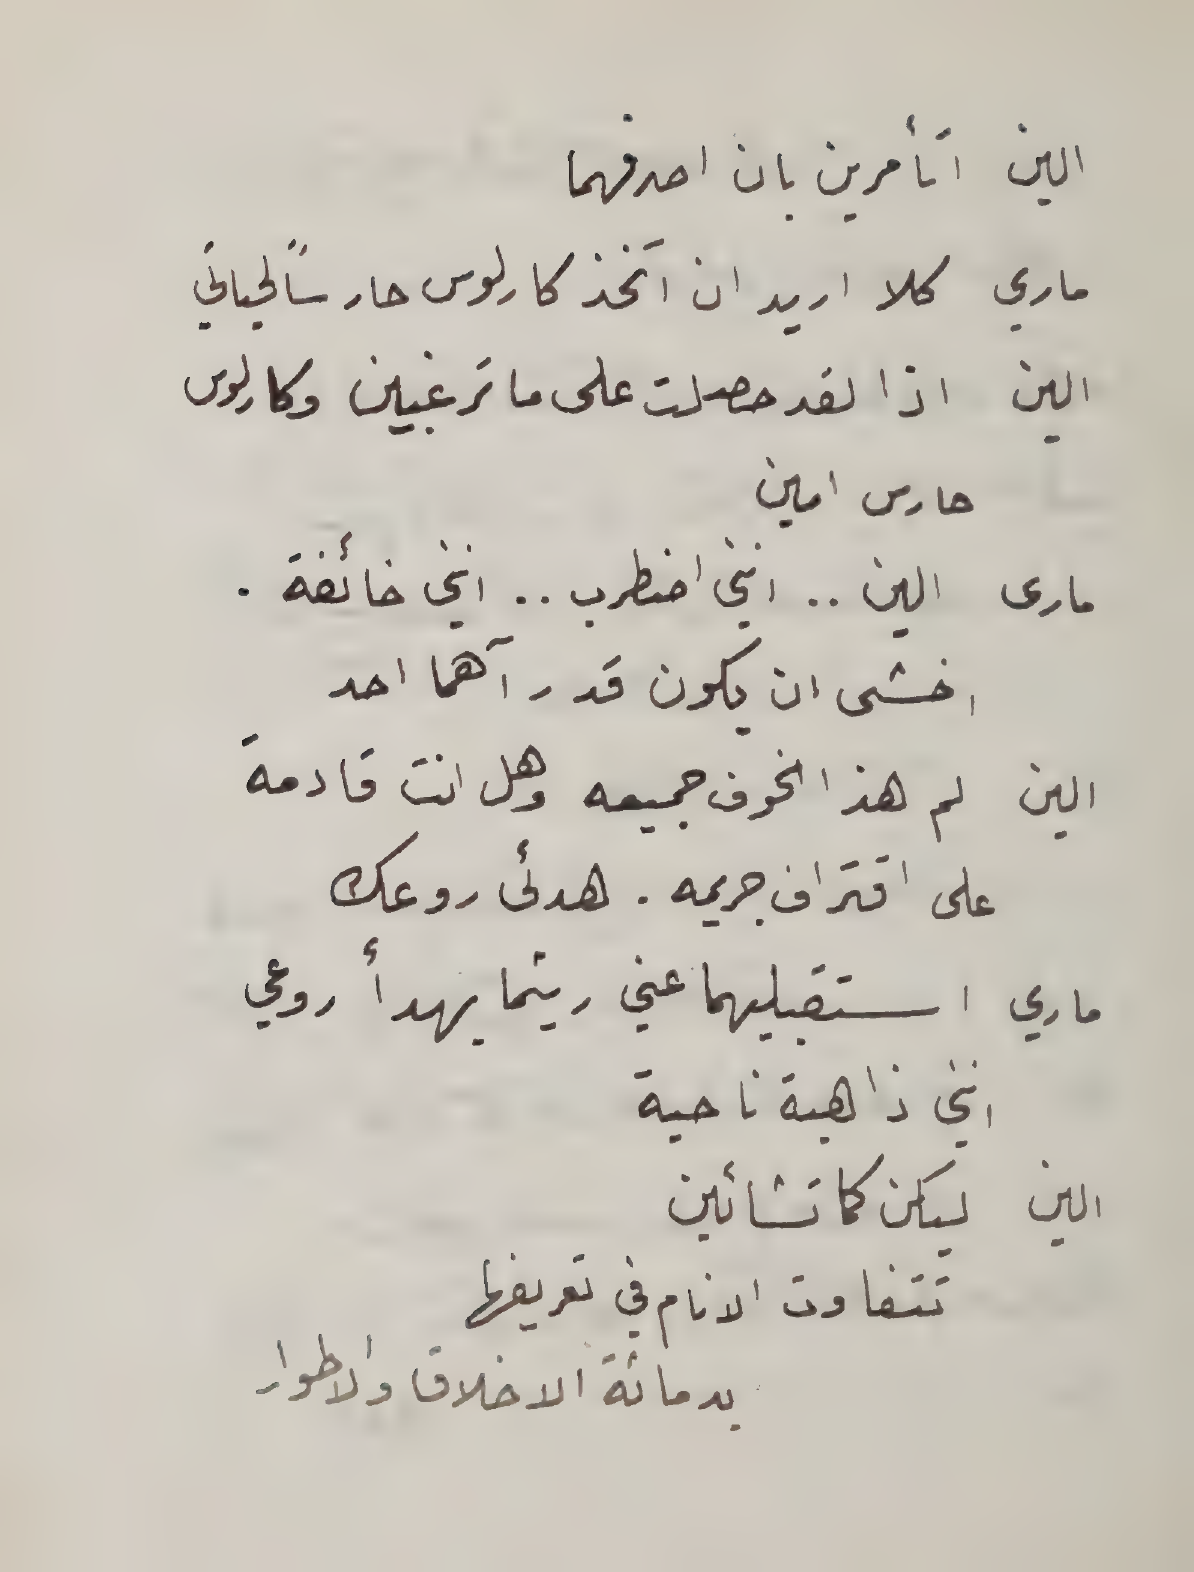 الين اتأمرين بان اصرفهما
ماري كلا اريد ان اتخذ كارلوس حارساً لحياتي
الين اذا لقد حصلت على ما ترغبين وكارلوس
حارس امين
مارى الين .. انني اضطرب .. انني خائفة .
اخشى ان يكون قد رآهما احد
الين لم هذا الخوف جميعه وهل انت قادمة
على اقتراف جريمه . هدئى روعك
ماري استقبليهما عني ريثما يهدأ روعي
انني ذاهبة ناحية
الين ليكن كما تشائين
تتفاوت الانام في تعريفها
بدماثة الاخلاق والاطوار